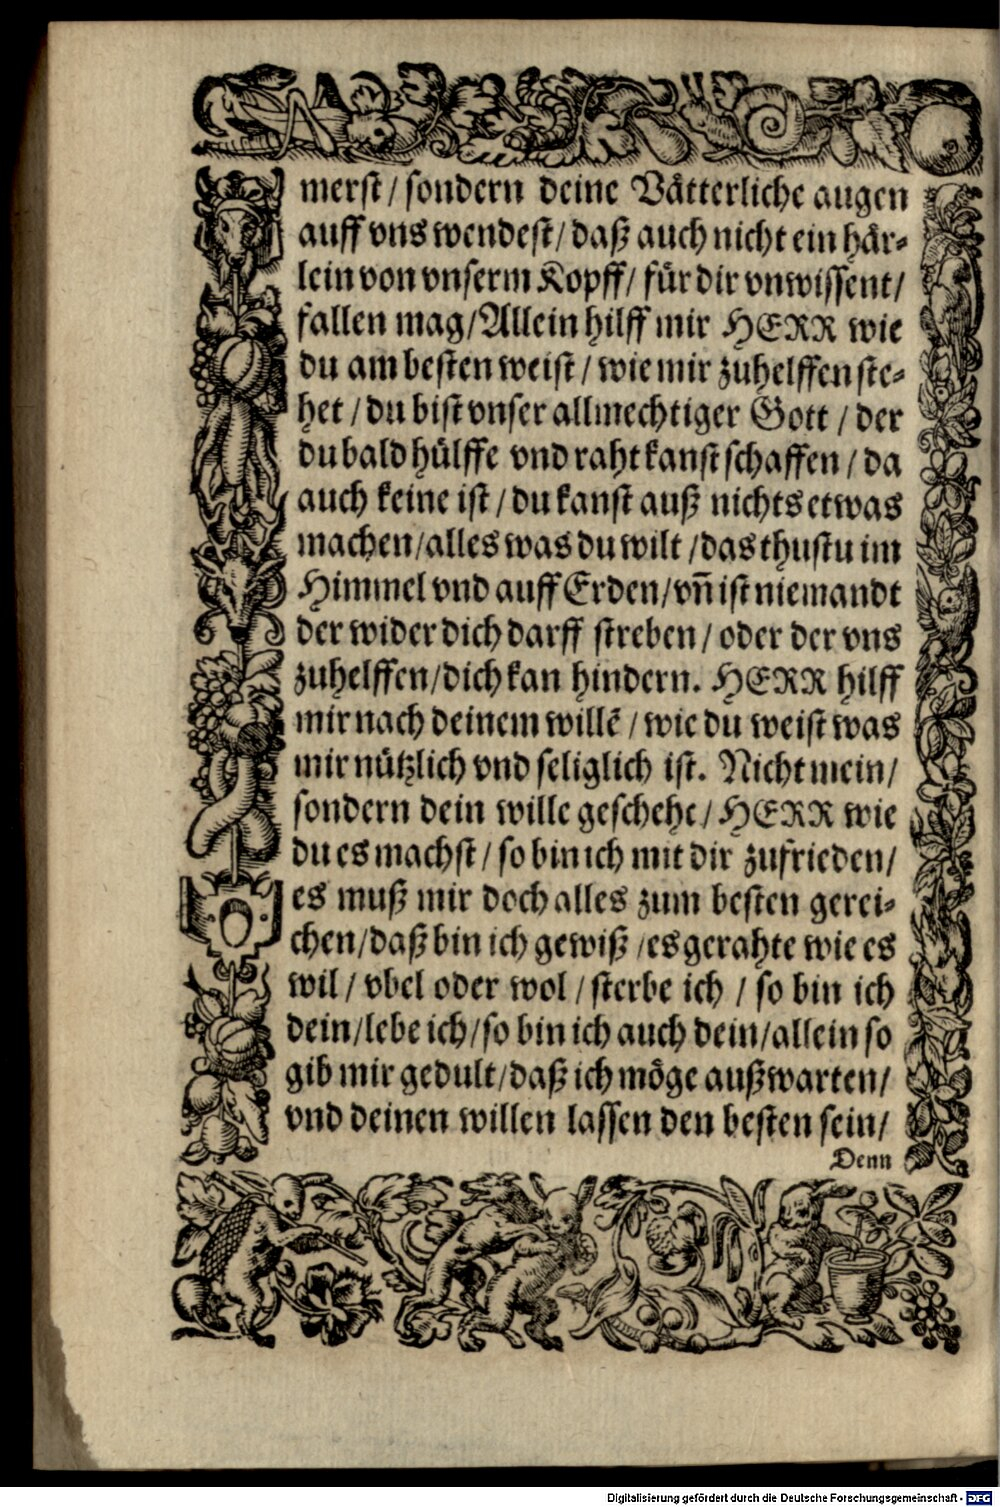 merst / sondern deine Vätterliche augen
auff vns wendest / daß auch nicht ein här-
lein von vnserm Kopff / für dir vnwissent /
fallen mag / Allein hilff mir HERR wie
du am besten weist / wie mir zuhelffen ste-
het / du bist vnser allmechtiger Gott / der
du bald hülffe vnd raht kanst schaffen / da
auch keine ist / du kanst auß nichts etwas
machen / alles was du wilt / das thustu im
Himmel vnd auff Erden / vñ ist niemandt
der wider dich darff streben / oder der vns
zuhelffen / dich kan hindern. HERR hilff
mir nach deinem willē / wie du weist was
mir nützlich vnd seliglich ist. Nicht mein /
sondern dein wille geschehe / HERR wie
du es machst / so bin ich mit dir zufrieden /
es muß mir doch alles zum besten gerei-
chen / daß bin ich gewiß / es gerahte wie es
wil / vbel oder wol / sterbe ich / so bin ich
dein / lebe ich / so bin ich auch dein / allein so
gib mir gedult / daß ich möge außwarten /
vnd deinen willen lassen den besten sein /
Denn
Digitalisierung gefördert durch die Deutsche Forschungsgemeinschaft - DFG